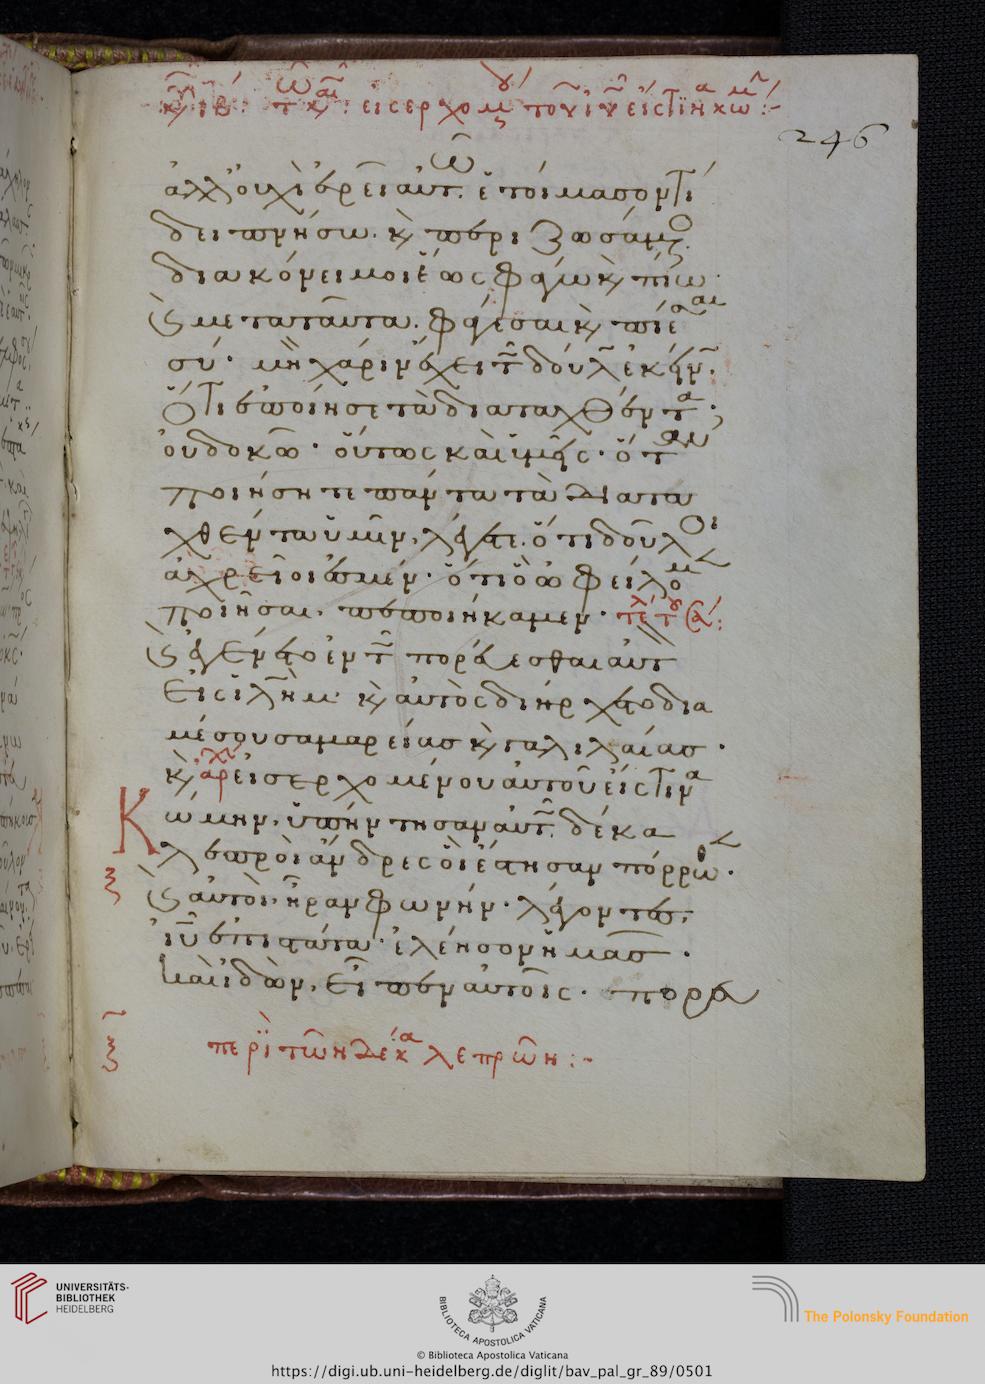 κυ ιβ τω και εισερχομου του ιυ εις τινα κωμ
246
ἀλλ' οὐχὶ ἐρεῖ αὐτῶ. ἑτοίμασον τί
δειπνήσω. κ περιζωσάμενος
διακόνει μοι ἕως φάγω κ πίω.
κ μετα ταῦτα. φάγεσαι κ πίεσαι
σύ. μὴ χάριν ἔχει τῶ δούλω ἐκείνω.
ὅτι ἐποίησε τὰ διαταχθέντα;
οὐ δοκῶ. οὕτως καὶ ὑμεῖς. ὅταν
ποιήσητε πάντα τὰ διατα
χθέντα ὑμῖν, λέγετε. ὅτι δοῦλοι
ἀχρεῖοι ἐσμεν. ὅτι ὃ ὠφείλομεν
ποιῆσαι. πεποιήκαμεν. τέλος του σα:
κ ἐγένετο ἐν τῶ πορεύεσθαι αὐτ
εἰς ἱλημ. κ αὐτὸς διήρχετο δια
μέσου σαμαρείας κ γαλιλαίας.
ἀρχ
κ εἰσερχομένου αὐτοῦ εἴς τινα
κώμην, ὑπήντησαν αὐτῶ. δέκα
λεπροὶ ἄνδρες οἳ ἔστησαν πόρρω.
κ αὐτοὶ ἦραν φωνήν. λέγοντες.
ιυ ἐπιστάτα. ἐλέησον ἡμᾶς.
καὶ ἰδὼν, εἶπεν αὐτοῖς. πορευ
ξ περὶ τῶν δέκα λεπρῶν:-
UNIVERSITÄTS-
BIBLIOTHEK
HEIDELBERG
BIBLIOTECA APOSTOLICA VATICANA
The Polonsky Foundation
© Biblioteca Apostolica Vaticana
https://digi.ub.uni-heidelberg.de/diglit/bav_pal_gr_89/0501